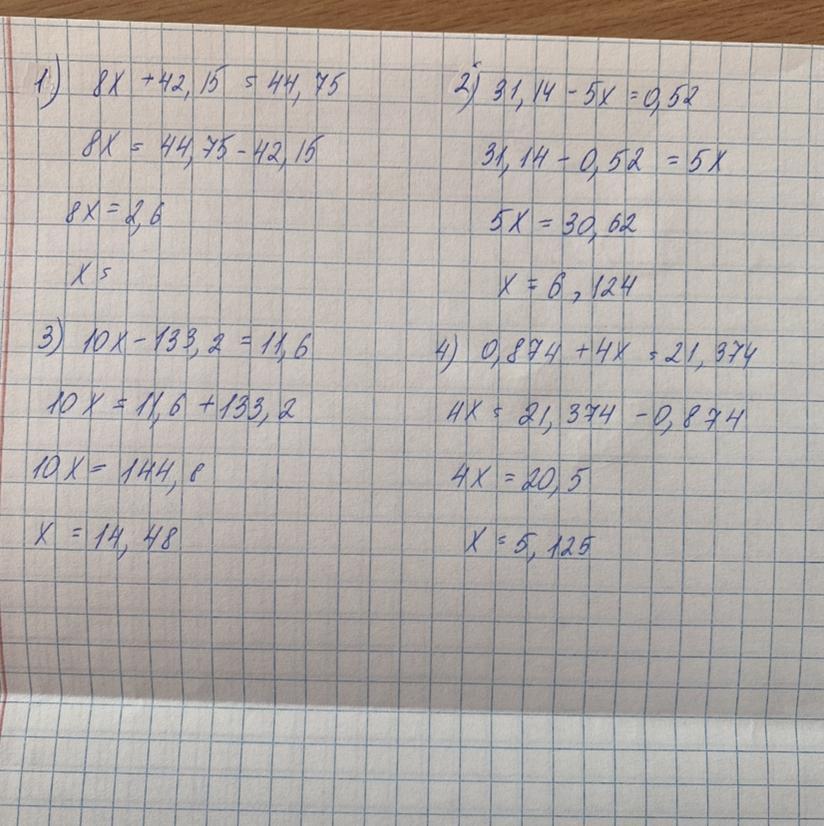 1) 8x + 42,15 = 44,75
8x = 44,75 - 42,15
8x = 2,6
x =
2) 31,14 - 5x = 0,52
31,14 - 0,52 = 5x
5x = 30,62
x = 6,124
3) 10x - 133,2 = 11,6
10x = 11,6 + 133,2
10x = 144,8
x = 14,48
4) 0,874 + 4x = 21,374
4x = 21,374 - 0,874
4x = 20,5
x = 5,125